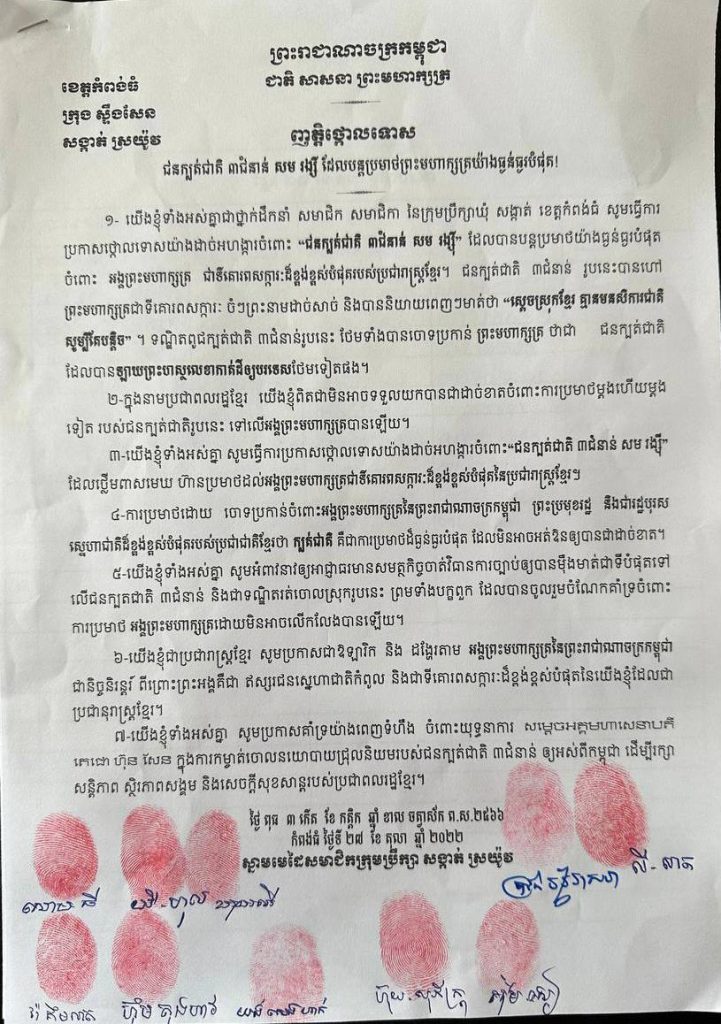 ព្រះរាជាណាចក្រកម្ពុជា
ជាតិ សាសនា ព្រះមហាក្សត្រ
ខេត្តកំពង់ធំ
ក្រុង ស្ទឹងសែន
សង្កាត់ ស្រយ៉ូវ
ញត្តិថ្កោលទោស
ជនក្បត់ជាតិ ៣ជំនាន់ សម រង្ស៊ី ដែលបន្តប្រមាថព្រះមហាក្សត្រយ៉ាងធ្ងន់ធ្ងរបំផុត!
១- យើងខ្ញុំទាំងអស់គ្នាជាថ្នាក់ដឹកនាំ សមាជិក សមាជិកា នៃក្រុមប្រឹក្សាឃុំ សង្កាត់ ខេត្តកំពង់ធំ សូមធ្វើការ
ប្រកាសថ្កោលទោសយ៉ាងដាច់អហង្ការចំពោះ “ជនក្បត់ជាតិ ៣ជំនាន់ សម រង្ស៊ី” ដែលបានបន្តប្រមាថយ៉ាងធ្ងន់ធ្ងរបំផុត
ចំពោះ អង្គព្រះមហាក្សត្រ ជាទីគោរពសក្ការៈដ៏ខ្ពង់ខ្ពស់បំផុតរបស់ប្រជារាស្ត្រខ្មែរ។ ជនក្បត់ជាតិ ៣ជំនាន់ រូបនេះបានហៅ
ព្រះមហាក្សត្រជាទីគោរពសក្ការៈ ចំៗព្រះនាមដាច់សាច់ និងបាននិយាយពេញៗមាត់ថា “ស្តេចស្រុកខ្មែរ គ្មានមនសិការជាតិ
សូម្បីតែបន្តិច” ។ ទណ្ឌិតពូជក្បត់ជាតិ ៣ជំនាន់រូបនេះ ថែមទាំងបានចោទប្រកាន់ ព្រះមហាក្សត្រ ថាជា ជនក្បត់ជាតិ
ដែលបានឡាយព្រះហស្តលេខាកាត់ដីឲ្យបរទេសថែមទៀតផង។
២-ក្នុងនាមប្រជាពលរដ្ឋខ្មែរ យើងខ្ញុំពិតជាមិនអាចទទួលយកបានជាដាច់ខាតចំពោះការប្រមាថម្តងហើយម្តង
ទៀត របស់ជនក្បត់ជាតិរូបនេះ ទៅលើអង្គព្រះមហាក្សត្របានឡើយ។
៣-យើងខ្ញុំទាំងអស់គ្នា សូមធ្វើការប្រកាសថ្កោលទោសយ៉ាងដាច់អហង្ការចំពោះ“ជនក្បត់ជាតិ ៣ជំនាន់ សម រង្ស៊ី”
ដែលថ្លើមពាសមេឃ ហ៊ានប្រមាថដល់អង្គព្រះមហាក្សត្រជាទីគោរពសក្ការៈដ៏ខ្ពង់ខ្ពស់បំផុតនៃប្រជារាស្ត្រខ្មែរ។
៤-ការប្រមាថដោយ ចោទប្រកាន់ចំពោះអង្គព្រះមហាក្សត្រនៃព្រះរាជាណាចក្រកម្ពុជា ព្រះប្រមុខរដ្ឋ និងជារដ្ឋបុរស
ស្នេហាជាតិដ៏ខ្ពង់ខ្ពស់បំផុតរបស់ប្រជាជាតិខ្មែរថា ក្បត់ជាតិ គឺជាការប្រមាថដ៏ធ្ងន់ធ្ងរបំផុត ដែលមិនអាចអត់ឱនឲ្យបានជាដាច់ខាត។
៥-យើងខ្ញុំទាំងអស់គ្នា សូមអំពាវនាវឲ្យអាជ្ញាធរមានសមត្ថកិច្ចចាត់វិធានការច្បាប់ឲ្យបានម៉ឺងម៉ាត់ជាទីបំផុតទៅ
លើជនក្បតជាតិ ៣ជំនាន់ និងជាទណ្ឌិតរត់ចោលស្រុករូបនេះ ព្រមទាំងបក្ខពួក ដែលបានចូលរួមចំណែកគាំទ្រចំពោះ
ការប្រមាថ អង្គព្រះមហាក្សត្រដោយមិនអាចលើកលែងបានឡើយ។
៦-យើងខ្ញុំជាប្រជារាស្ត្រខ្មែរ សូមប្រកាសជាឱឡារិក និង ដង្ហែរតាម អង្គព្រះមហាក្សត្រនៃព្រះរាជាណាចក្រកម្ពុជា
ជានិច្ចនិរន្តរ៍ ពីព្រោះព្រះអង្គគឺជា ឥស្សរជនស្នេហាជាតិកំពូល និងជាទីគោរពសក្ការៈដ៏ខ្ពង់ខ្ពស់បំផុតនៃយើងខ្ញុំដែលជា
ប្រជានុរាស្ត្រខ្មែរ។
៧-យើងខ្ញុំទាំងអស់គ្នា សូមប្រកាសគាំទ្រយ៉ាងពេញទំហឹង ចំពោះយុទ្ធនាការ សម្តេចអគ្គមហាសេនាបតី
តេជោ ហ៊ុន សែន ក្នុងការកម្ចាត់ចោលនយោបាយជ្រុលនិយមរបស់ជនក្បត់ជាតិ ៣ជំនាន់ ឲ្យអស់ពីកម្ពុជា ដើម្បីរក្សា
សន្តិភាព ស្ថិរភាពសង្គម និងសេចក្តីសុខសាន្តរបស់ប្រជាពលរដ្ឋខ្មែរ។
ថ្ងៃ ពុធ ៣ កើត ខែ កត្តិក ឆ្នាំ ខាល ចត្វាស័ក ព.ស.២៥៦៦
កំពង់ធំ ថ្ងៃទី ២៧ ខែ តុលា ឆ្នាំ ២០២២
ស្នាមមេដៃសមាជិកក្រុមប្រឹក្សា សង្កាត់ ស្រយ៉ូវ
លី - លាត